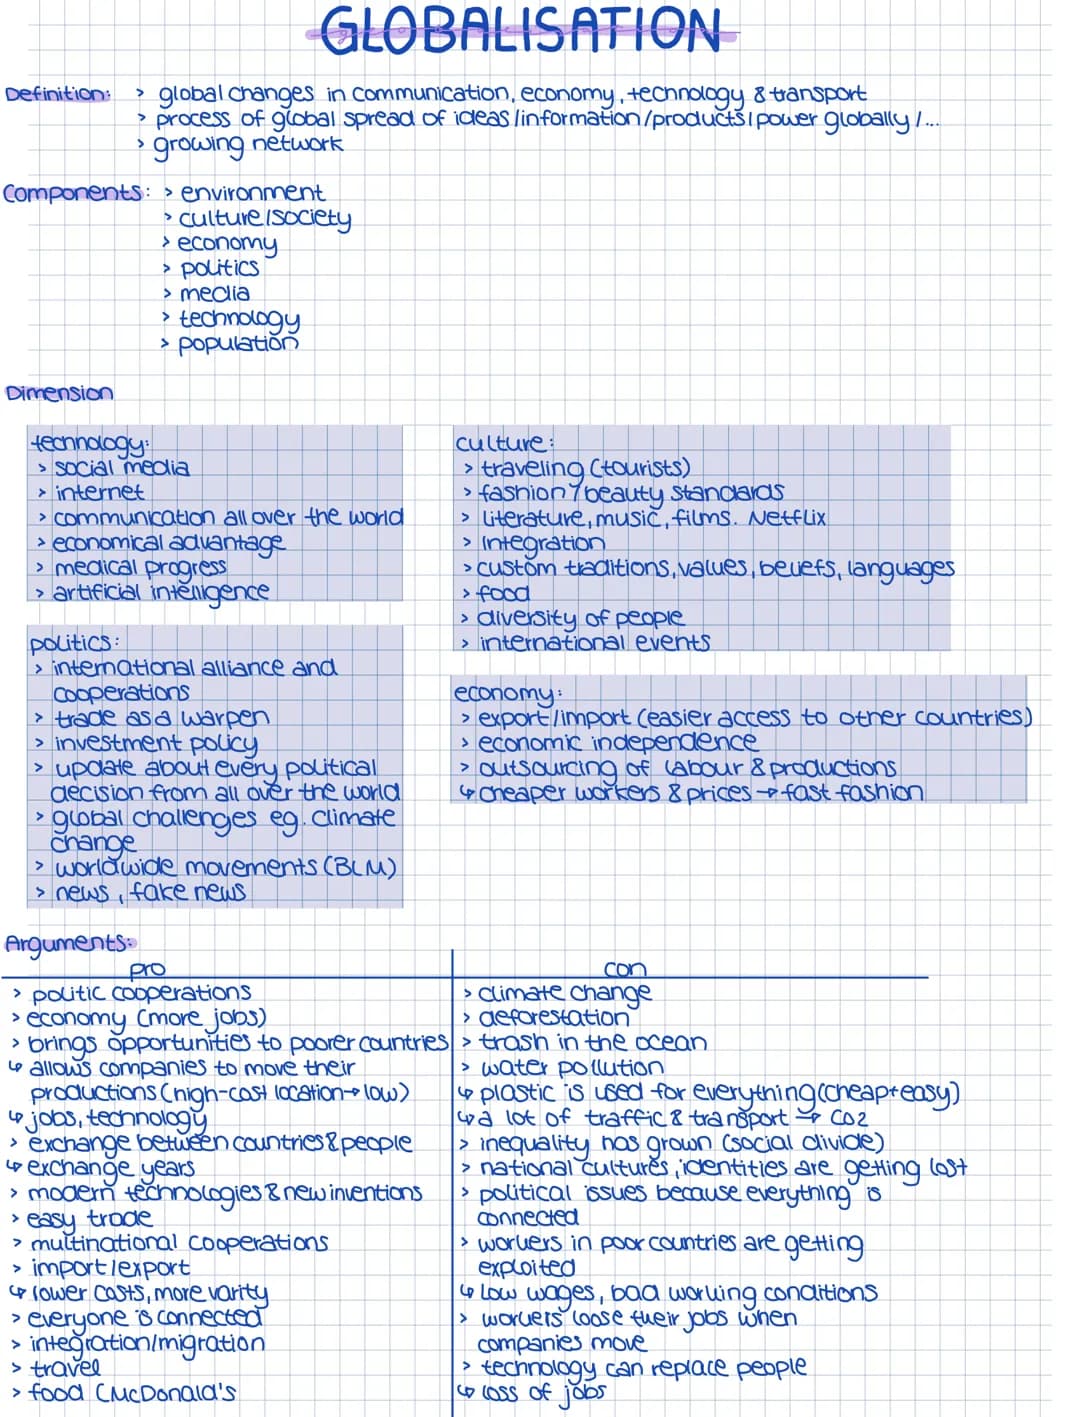 GLOBALISATION
Definition: > global changes in communication, economy, technology & transport
> process of global spread of ideas/information/products/power globally/...
> growing network
Components: > environment
> culture/society
> economy
> politics
> media
> technology
> population
Dimension
technology:
> social media
> internet
> communication all over the world
> economical advantage
> medical progress
> artificial intelligence
culture:
> traveling (tourists)
> fashion/beauty standards
> literature, music, films. Netflix
> Integration
> custom traditions, values, beliefs, languages
> food
> diversity of people
> international events
politics:
> international alliance and
cooperations
> trade as a warpen
> investment policy
> update about every political
decision from all over the world
> global challenges eg. climate
change
> worldwide movements (BLM)
> news, fake news
economy:
> export/import (easier access to other countries)
> economic independence
> outsourcing of labour & productions
↳ cheaper workers & prices → fast fashion
Arguments:
pro
> politic cooperations
> economy (more jobs)
> brings opportunities to poorer countries
↳ allows companies to move their
productions (high-cost location → low)
↳ jobs, technology
> exchange between countries & people
↳ exchange years
> modern technologies & new inventions
> easy trade
> multinational cooperations
> import/export
↳ lower costs, more varity
> everyone is connected
> integration/migration
> travel
> food (McDonald's
con
> climate change
> deforestation
> trash in the ocean
> water pollution
↳ plastic is used for everything (cheap+easy)
↳ a lot of traffic & transport → CO2
> inequality has grown (social divide)
> national cultures, identities are getting lost
> political issues because everything is
connected
> workers in poor countries are getting
exploited
↳ low wages, bad working conditions
> workers loose their jobs when
companies move
> technology can replace people
↳ loss of jobs